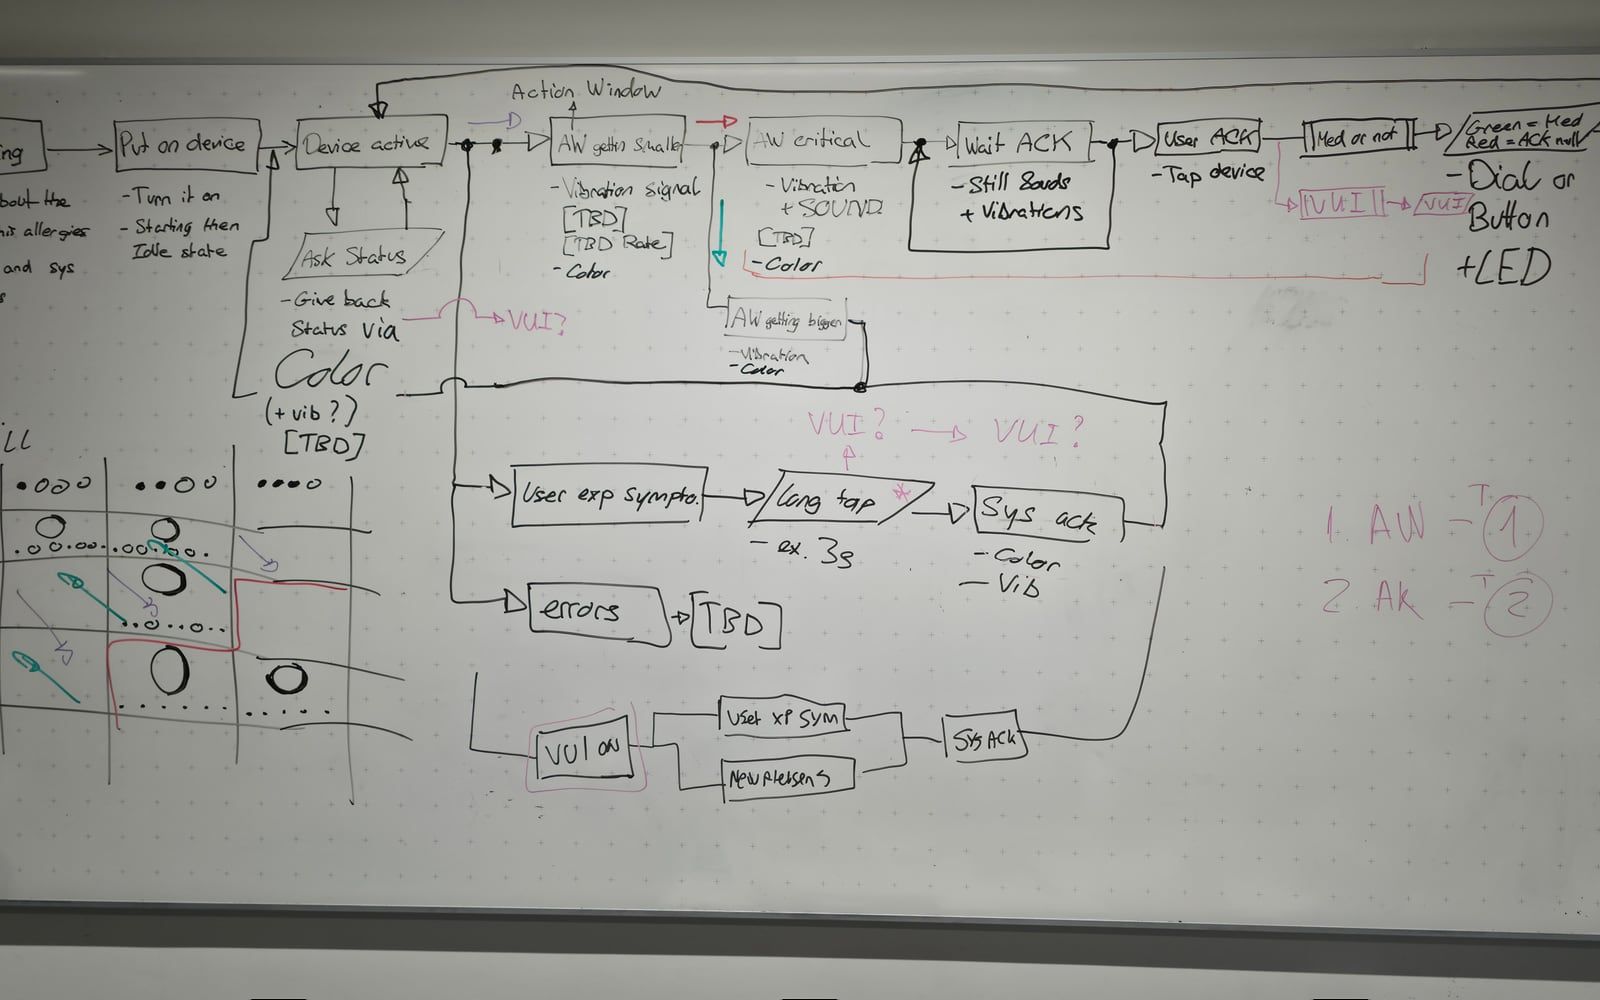 Action Window
ing
Put on device
Device active
AW gettin smaller
AW critical
Wait ACK
User ACK
Med or not
Green = Med
Red = ACK null
bout the
his allergies
and sys
s
- Turn it on
- Starting then
Idle state
Ask Status
- Give back
Status via
Color
(+ vib ?)
[TBD]
VUI?
- Vibration Signal
[TBD]
[TBD Rate]
- Color
- Vibration
+ SOUND
[TBD]
- Color
- Still Souds
+ Vibrations
- Tap device
VUI
VUI
- Dial or
Button
+ LED
AW getting bigger
- Vibration
- Color
VUI?
VUI?
User exp sympto.
Long tap *
- ex. 3s
Sys ack
- Color
- Vib
errors
[TBD]
VUI ON
User xp sym
Sys Ack
1. AW - T 1
2. AK - T 2